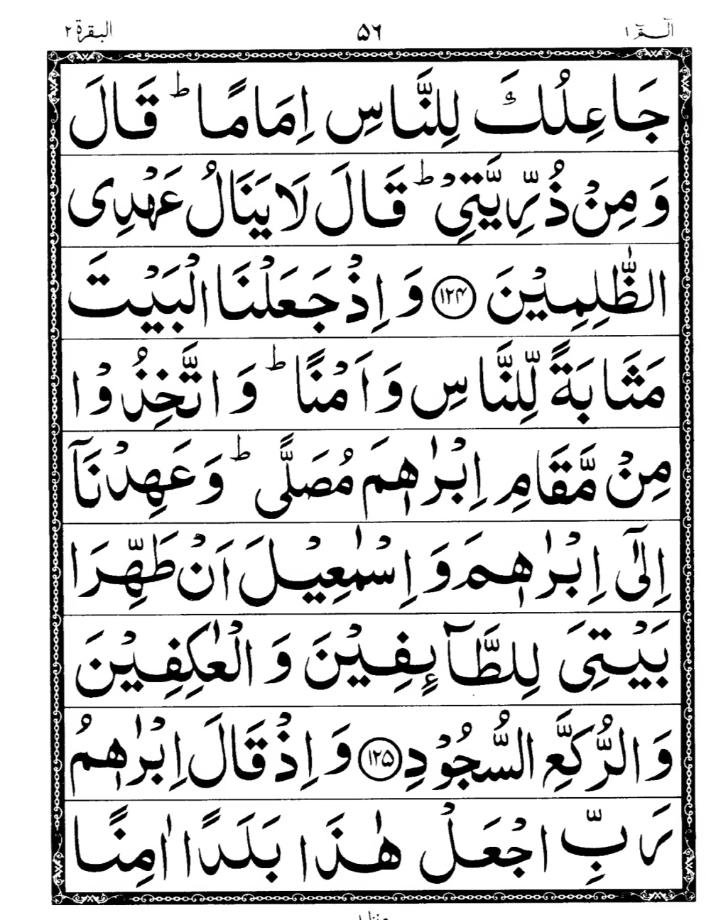 الٓـمّٓ ١ ٥٦ البقرة ٢
جَاعِلُكَ لِلنَّاسِ اِمَامًا ؕ قَالَ
وَ مِنْ ذُرِّیَّتِیْ ؕ قَالَ لَا یَنَالُ عَهْدِی
الظّٰلِمِیْنَ ﴿۱۲۴﴾ وَ اِذْ جَعَلْنَا الْبَیْتَ
مَثَابَةً لِّلنَّاسِ وَ اَمْنًا ؕ وَ اتَّخِذُوْا
مِنْ مَّقَامِ اِبْرٰهٖمَ مُصَلًّی ؕ وَ عَهِدْنَاۤ
اِلٰۤی اِبْرٰهٖمَ وَ اِسْمٰعِیْلَ اَنْ طَهِّرَا
بَیْتِیَ لِلطَّآىِٕفِیْنَ وَ الْعٰكِفِیْنَ
وَ الرُّكَّعِ السُّجُوْدِ ﴿۱۲۵﴾ وَ اِذْ قَالَ اِبْرٰهٖمُ
رَبِّ اجْعَلْ هٰذَا بَلَدًا اٰمِنًا